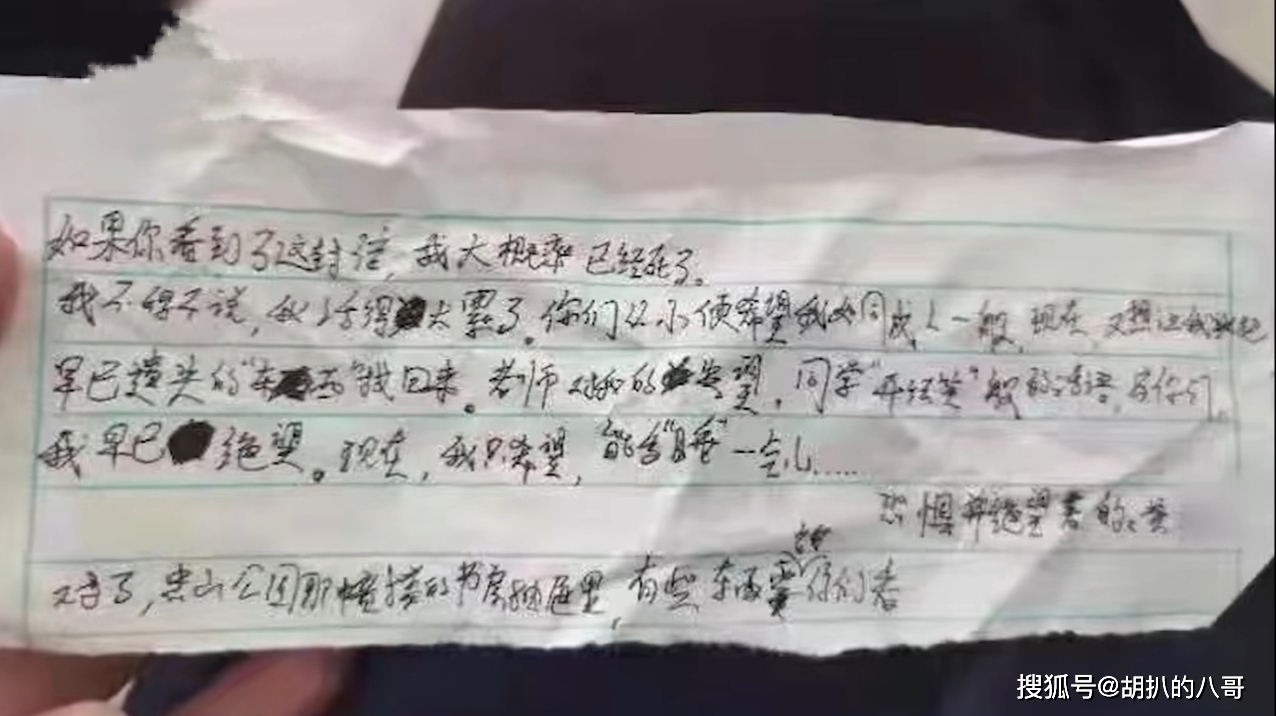 如果你看到了这封信,我大概率已经死了。
我不得不说,我活得太累了。你们从小便希望我如同成人一般,现在,又想让我去把
早已遗失的“东西”找回来。老师对我的失望,同学“开玩笑”般的话语,与你们,
我早已绝望。现在,我只希望,能多“睡”一会儿……
恐惧并绝望着的
对了,公园那幢楼的书房抽屉里,有些东西需要你们看
搜狐号@胡扒的八哥